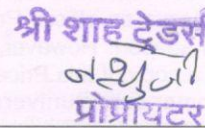 श्री शाह ट्रेडर्स
प्रोप्रायटर